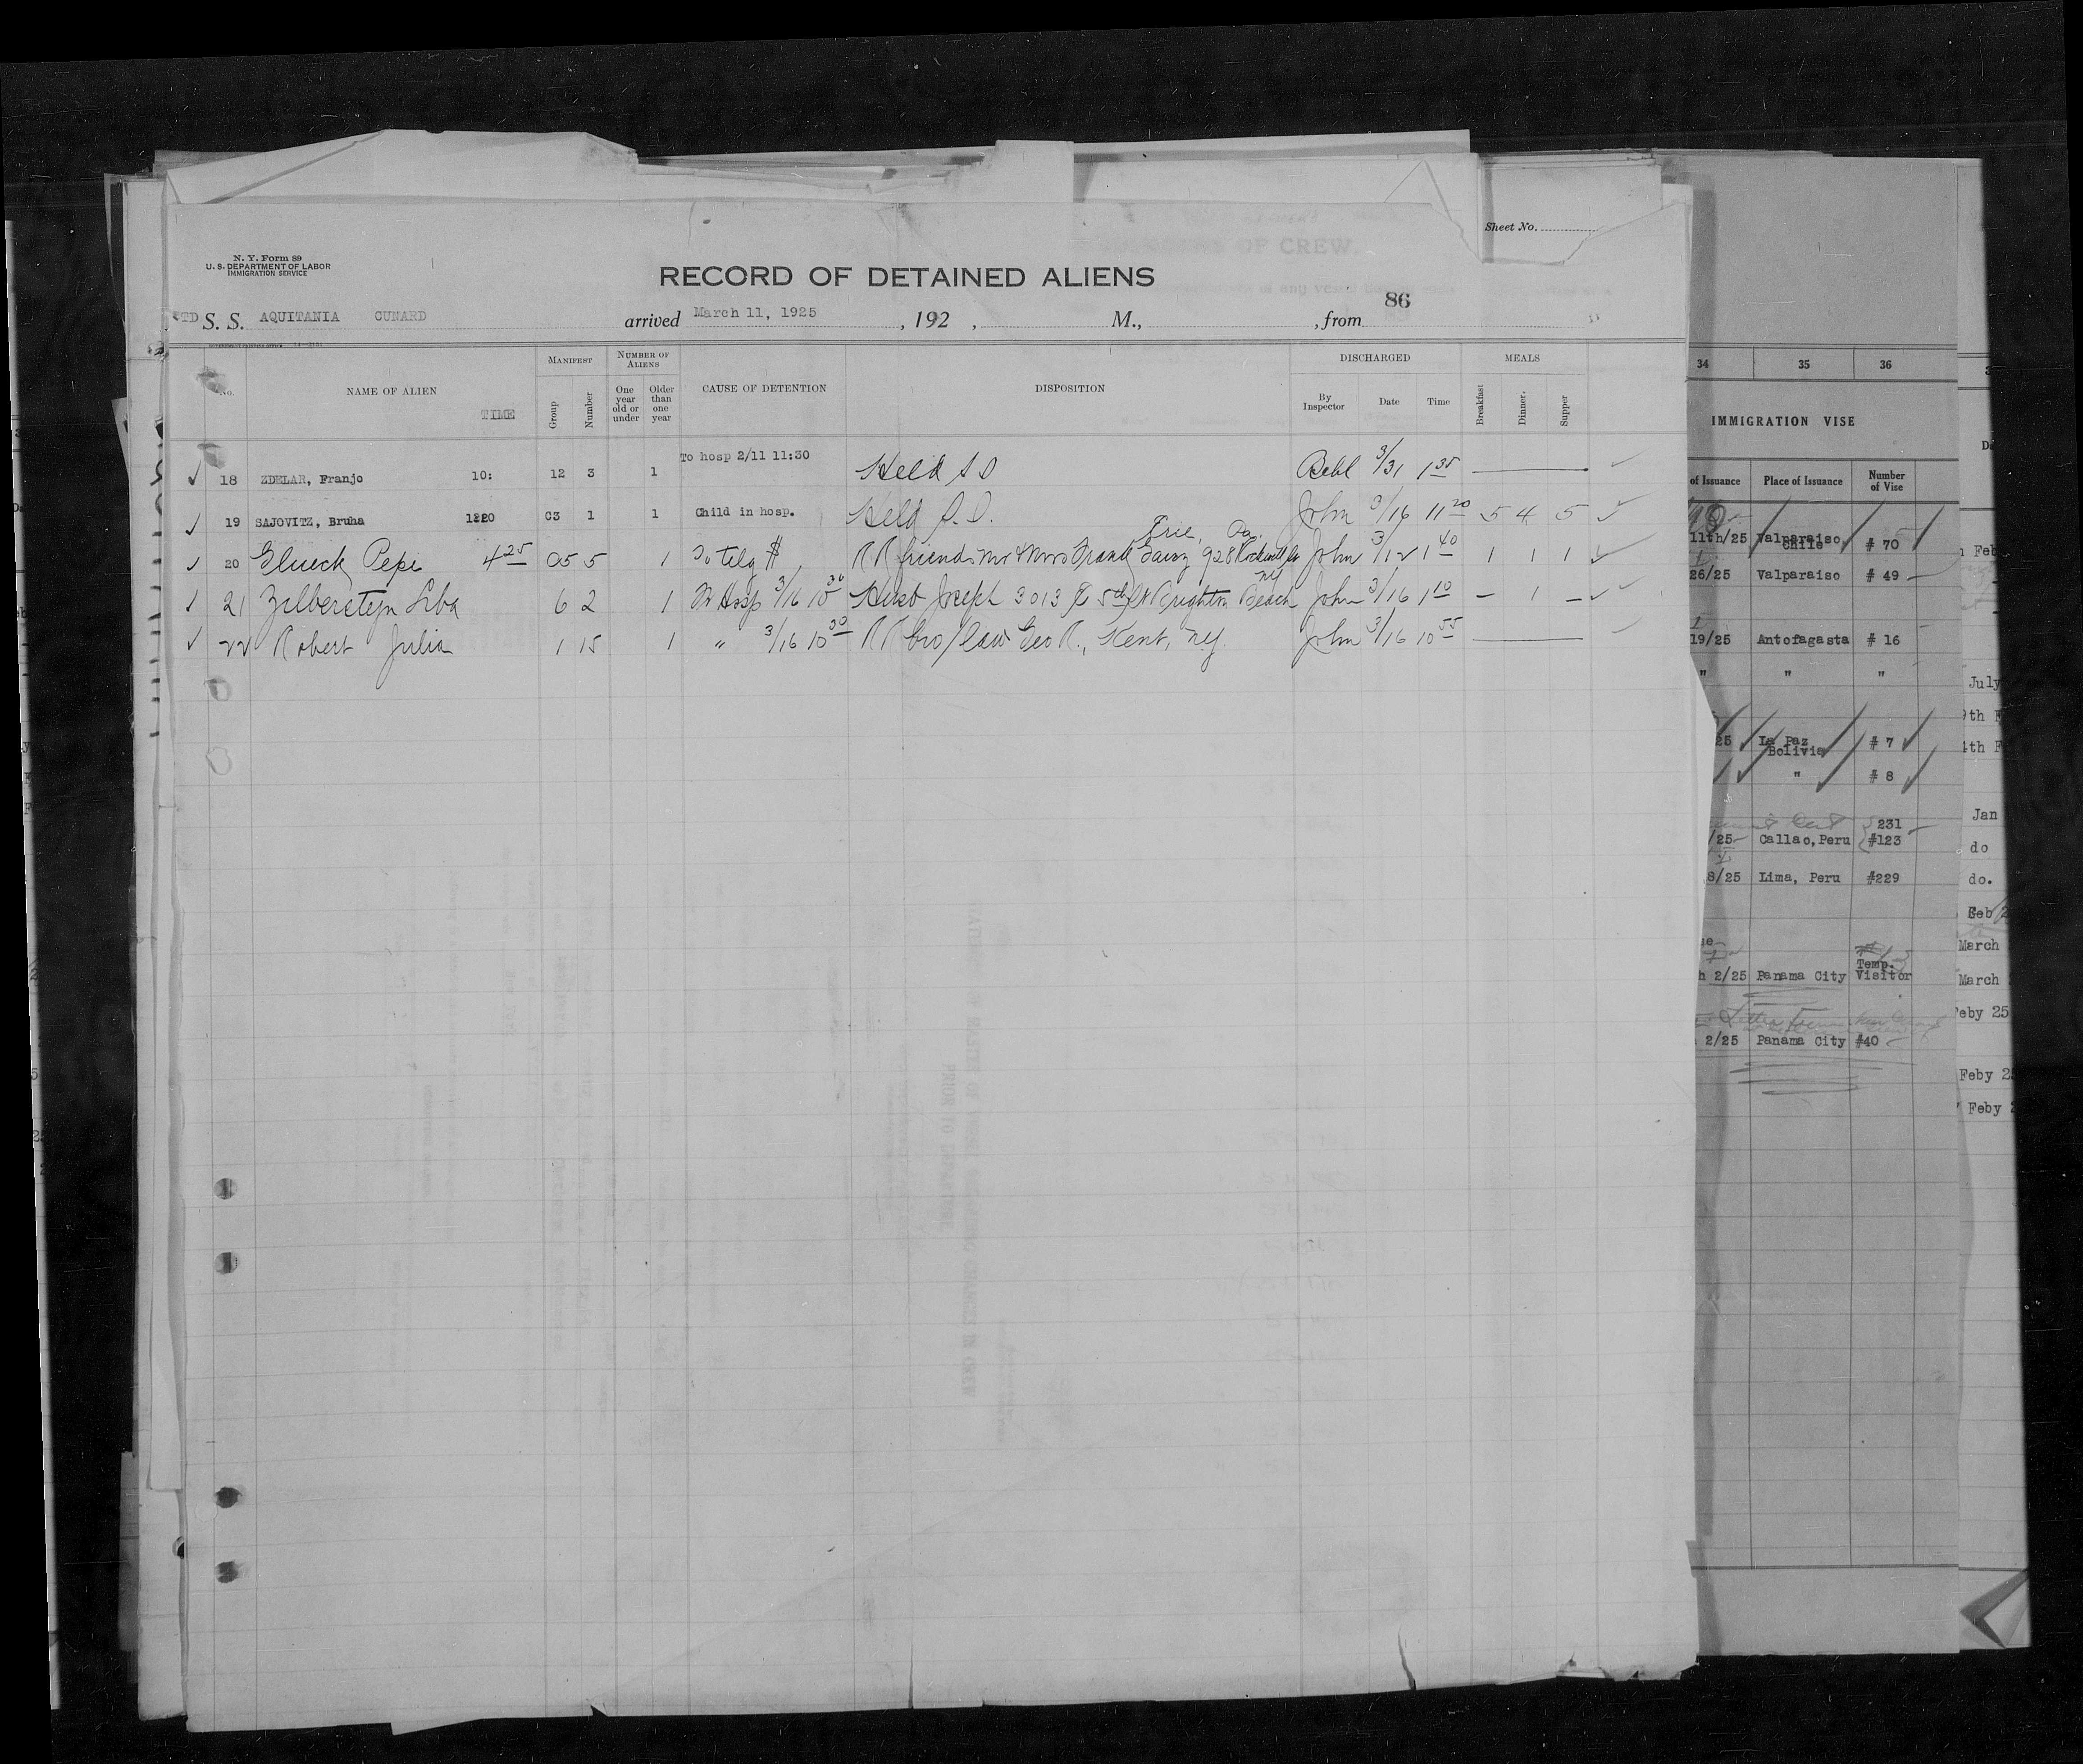 Sheet No.
N. Y. Form 89
U. S. DEPARTMENT OF LABOR
IMMIGRATION SERVICE
RECORD OF DETAINED ALIENS
86
STD S. S. AQUITANIA CUNARD arrived March 11, 1925, 192 , M., , from
No. NAME OF ALIEN TIME MANIFEST Group Number NUMBER OF ALIENS One year old or under Older than one year CAUSE OF DETENTION DISPOSITION DISCHARGED By Inspector Date Time MEALS Breakfast Dinner. Supper
To hosp 2/11 11:30
18 ZDELAR, Franjo 10: 12 3 1 Held S I 3/31 1 35
19 SAJOVITZ, Bruha 1220 C3 1 1 Child in hosp. Held S.I. John 3/16 11 20 5 4 5
Erie, Pa.
20 Glueck Pepi 4 25 05 5 1 To telg $ RR friends Mr & Mrs Frank 928 John 3/12 1 40 1 1 1
21 Zilbersteyn Liba 6 2 1 In Hosp 3/16 10 30 Husb Joseph 3013 E 5th St Brighton Beach NY John 3/16 1 10 – 1 –
22 Robert Julia 1 15 1 " 3/16 10 30 RR bro/law Geo R., Kent, NY. John 3/16 10 55
34 35 36
IMMIGRATION VISE
of Issuance Place of Issuance Number of Vise
11th/25 Valparaiso Chile # 70
26/25 Valparaiso # 49
19/25 Antofagasta # 16
" " "
25 La Paz Bolivia # 7
" # 8
231
/25 Callao, Peru #123
8/25 Lima, Peru #229
Temp.
h 2/25 Panama City Visitor
2/25 Panama City #40
Feb
July
9th F
4th F
Jan
do
do.
Feb 2
March
March
Feby 25
Feby 25
Feby 2